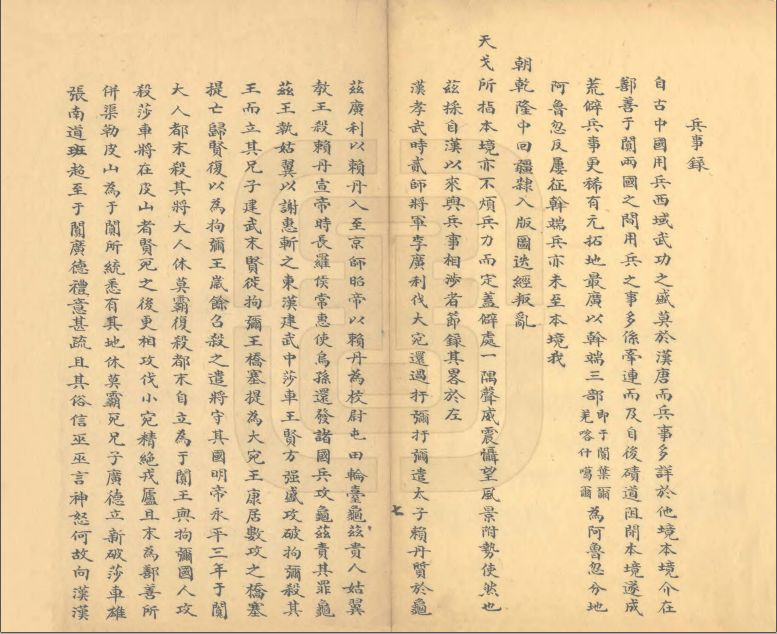 兵事錄
自古中國用兵西域武功之盛莫於漢唐而兵事多詳於他境本境介在
鄯善于闐兩國之間用兵之事多係牽連而及自後磧道阻閉本境遂成
荒僻兵事更稀有元拓地最廣以斡端三部即于闐葉爾羌喀什噶爾為阿魯忽分地
阿魯忽反屢征斡端兵亦未至本境我
朝乾隆中回疆隸入版圖迭經叛亂
天戈所指本境亦不煩兵力而定蓋僻處一隅聲威震懾望風景附勢使然也
茲採自漢以來與兵事相涉者節錄其畧於左
漢孝武時貳師將軍李廣利伐大宛還過扜彌扜彌遣太子賴丹質於龜
七
茲廣利以賴丹入至京師昭帝以賴丹為校尉屯田輪臺龜茲貴人姑翼
教王殺賴丹宣帝時長羅侯常惠使烏孫還發諸國兵攻龜茲責其罪龜
茲王執姑翼以謝惠斬之東漢建武中莎車王賢方强盛攻破拘彌殺其
王而立其兄子建武末賢徙拘彌王橋塞提為大宛王康居數攻之橋塞
提亡歸賢復以為拘彌王歲餘召殺之遣將守其國明帝永平三年于闐
大人都末殺其將大人休莫霸復殺都末自立為于闐王與拘彌國人攻
殺莎車將在皮山者賢死之後更相攻伐小宛精絕戎廬且末為鄯善所
併渠勒皮山為于闐所統悉有其地休莫霸死兄子廣德立新破莎車雄
張南道班超至于闐廣德禮意甚疏且其俗信巫巫言神怒何故向漢漢